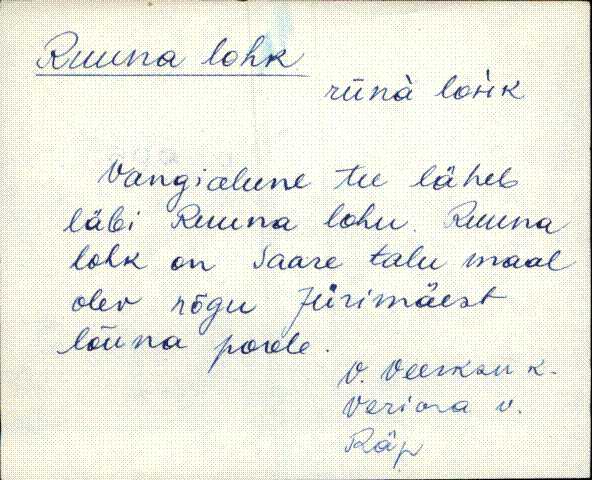 Ruuna lohk
rūnà lohk
Vangialune tee läheb
läbi Ruuna lohu. Ruuna
lohk on Saare talu maal
olev nõgu Jürimäest
lõuna poole.
V. Veerksu k.
Veriora v.
Räp